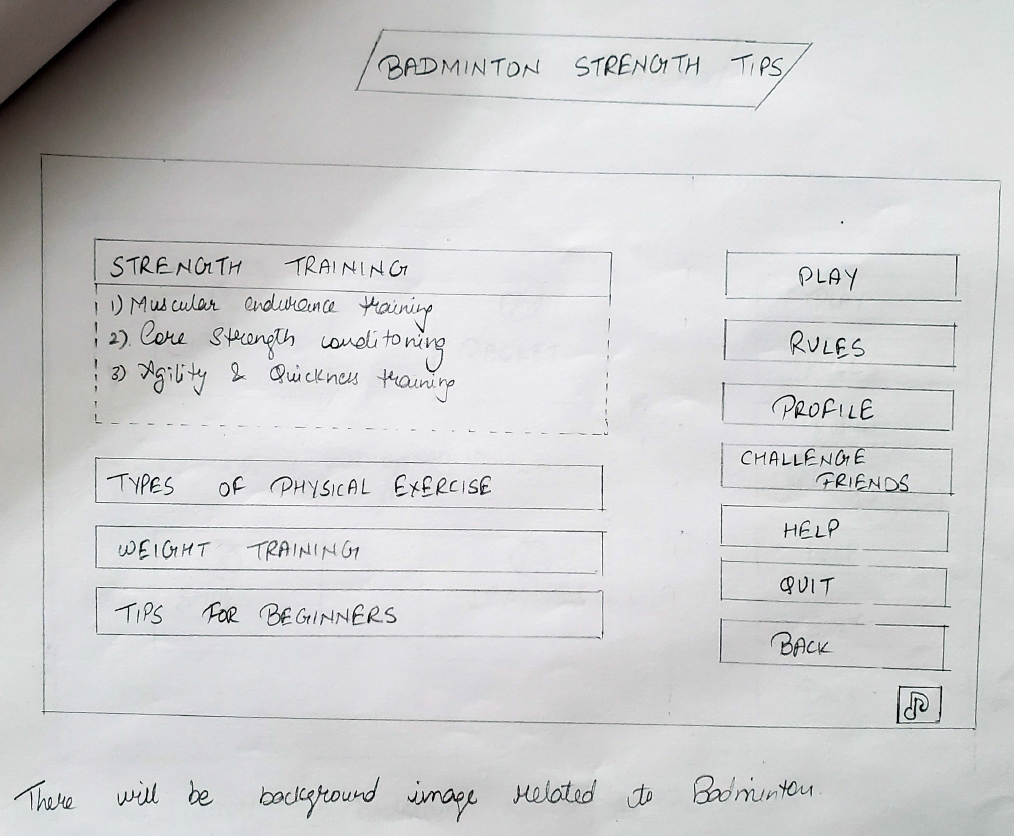 BADMINTON STRENGTH TIPS
STRENGTH TRAINING
1) Muscular endurance training
2) Core Strength conditoning
3) Agility & Quickness training
TYPES OF PHYSICAL EXERCISE
WEIGHT TRAINING
TIPS FOR BEGINNERS
PLAY
RULES
PROFILE
CHALLENGE
FRIENDS
HELP
QUIT
BACK
There will be background image related to Badminton.